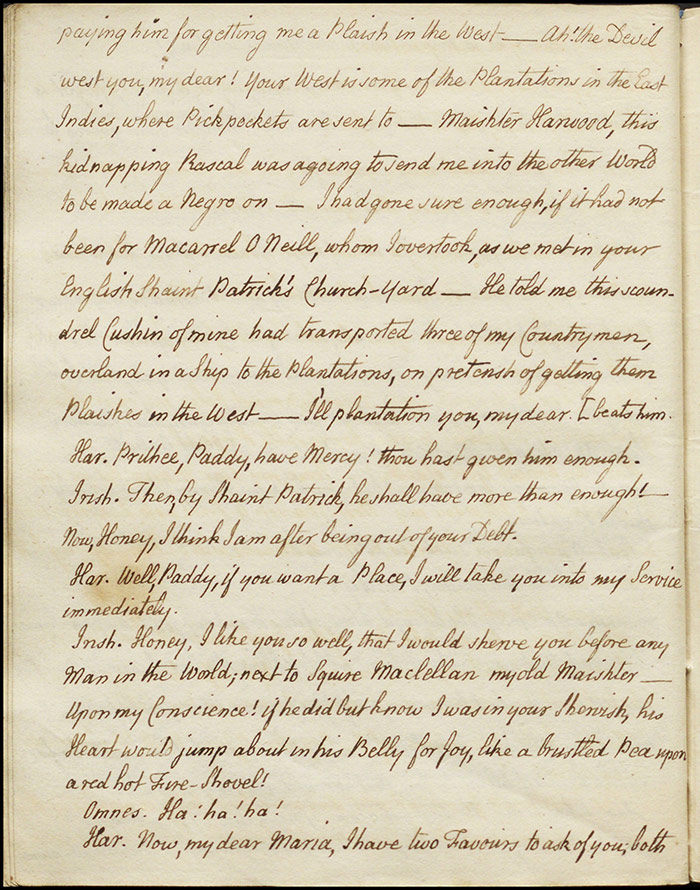 paying him for getting me a Plaish in the West — Ah! the Devil
west you, my dear! Your West is some of the Plantations in the East
Indies, where Pickpockets are sent to — Maishter Harwood, this
kidnapping Rascal was agoing to send me into the other World
to be made a Negro on — I had gone sure enough, if it had not
been for Macarrel O Neill, whom I overtook, as we met in your
English Shaint Patrick's Church-Yard — He told me this scoun-
drel Cushin of mine had transported three of my Countrymen,
overland in a Ship to the Plantations, on pretensh of getting them
Plaishes in the West — I'll plantation you, my dear. [beats him.
Har. Prithee, Paddy, have Mercy! thou hast given him enough.
Irish. Then, by Shaint Patrick, he shall have more than enough! —
Now, Honey, I think I am after being out of your Debt.
Har. Well, Paddy, if you want a Place, I will take you into my Service
immediately.
Irish. Honey, I like you so well, that I would sherve you before any
Man in the World; next to Squire Maclellan my old Maishter —
Upon my Conscience! if he did but know I was in your Shervish, his
Heart would jump about in his Belly for Joy, like a brustled Pea upon
a red hot Fire-Shovel!
Omnes. Ha! ha! ha!
Har. Now, my dear Maria, I have two Favours to ask of you; both